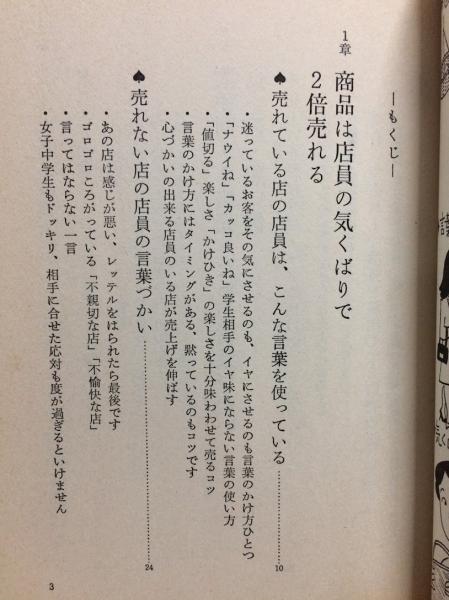 ―もくじ―
1章 商品は店員の気くばりで
2倍売れる
♠売れている店の店員は、こんな言葉を使っている……10
・迷っているお客をその気にさせるのも、イヤにさせるのも言葉のかけ方ひとつ
・「ナウイね」「カッコ良いね」学生相手のイヤ味にならない言葉の使い方
・「値切る」楽しさ「かけひき」の楽しさを十分味わわせて売るコツ
・言葉のかけ方にはタイミングがある、黙っているのもコツです
・心づかいの出来る店員のいる店が売上げを伸ばす
♠売れない店の店員の言葉づかい……24
・あの店は感じが悪い、レッテルをはられたら最後です
・ゴロゴロころがっている「不親切な店」「不愉快な店」
・言ってはならない一言
・女子中学生もドッキリ、相手に合せた応対も度が過ぎるといけません
3